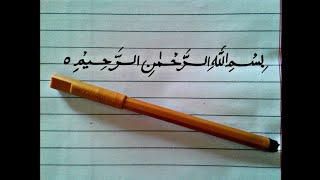 بِسْمِ اللّٰهِ الرَّحْمٰنِ الرَّحِيْمِ ○